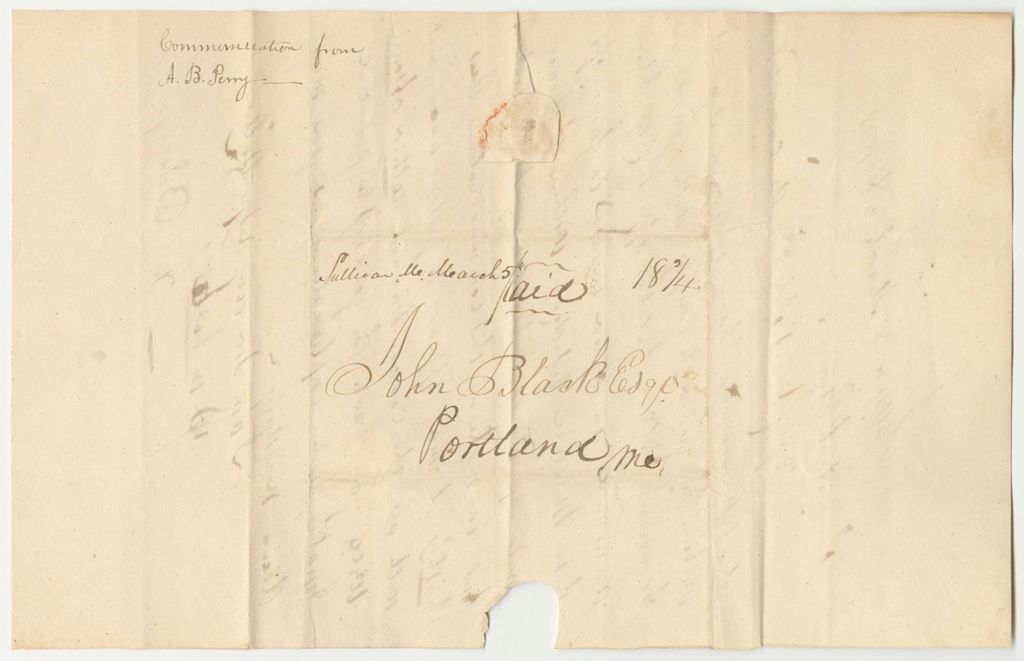 Communication from
A. B. Perry
Sullivan Me. March 5th Paid 18 3/4
John Black Esqr.
Portland, Me,